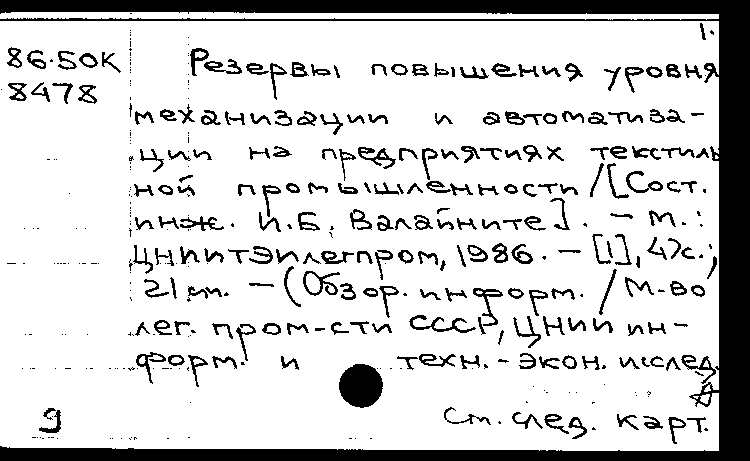 1.
86-50К Резервы повышения уровня
8478 механизации и автоматиза-
ции на предприятиях текстиль
ной промышленности / [Сост.
инж. И.Б. Валайните]. - М.:
ЦНИИТЭИлегпром, 1986. - [1], 47с.;
21 см. - (Обзор. информ. / М-во
лег. пром-сти СССР, ЦНИИ ин-
форм. и техн.-экон. исслед.
9 См. след. карт.